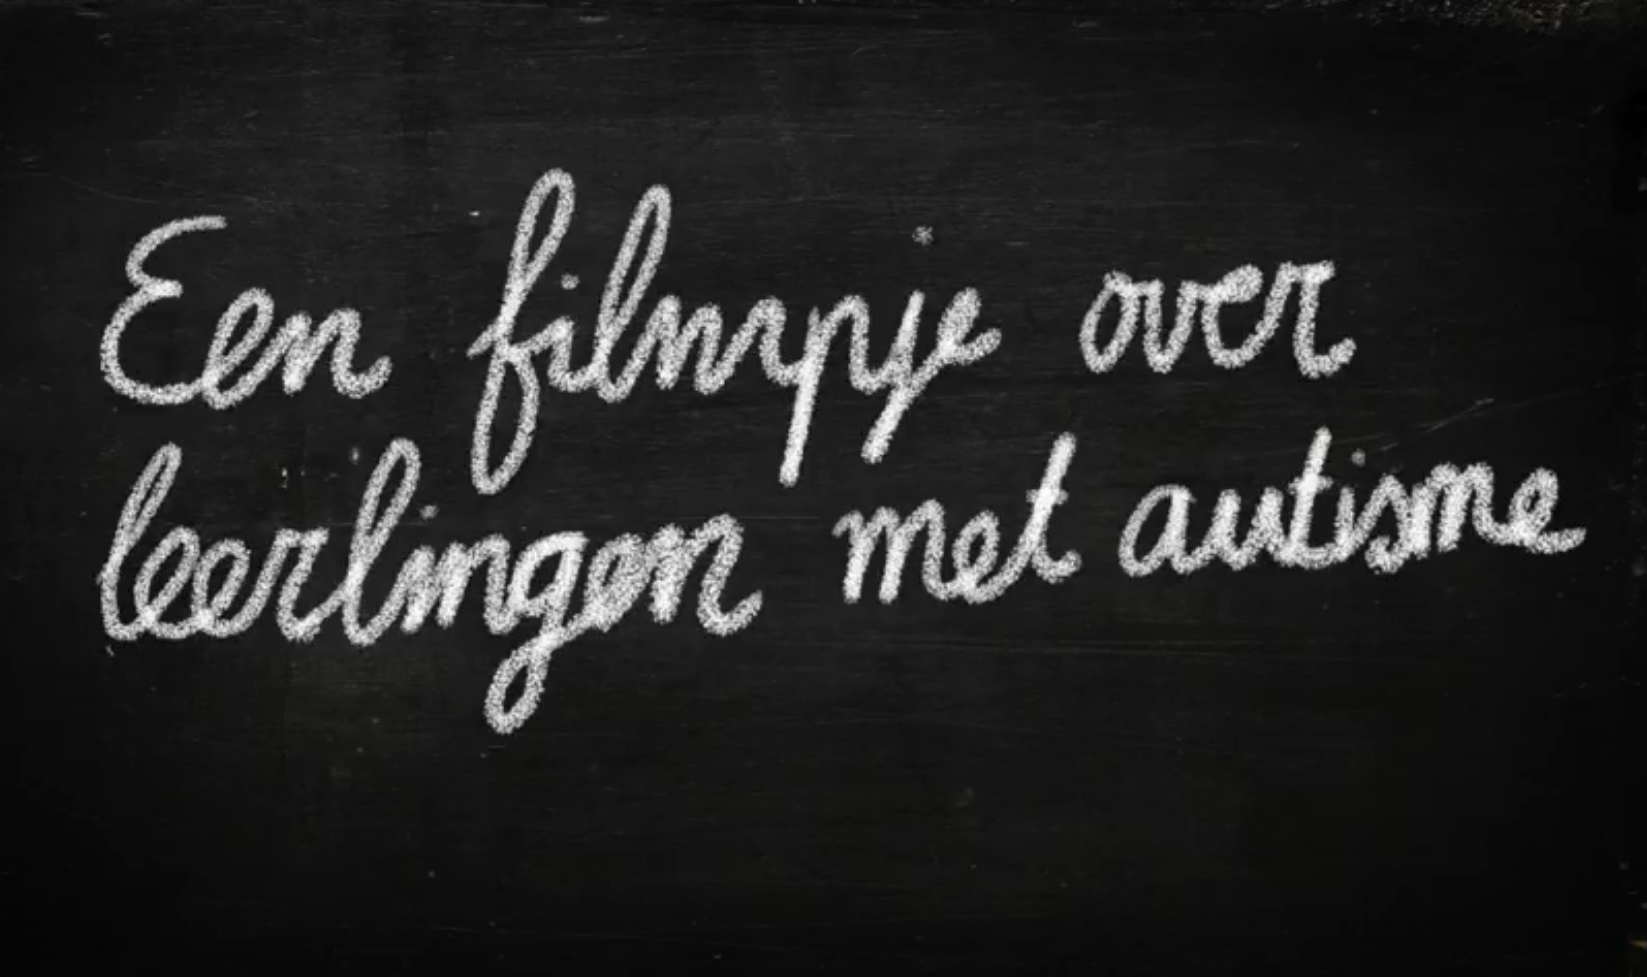 Een filmpje over
leerlingen met autisme